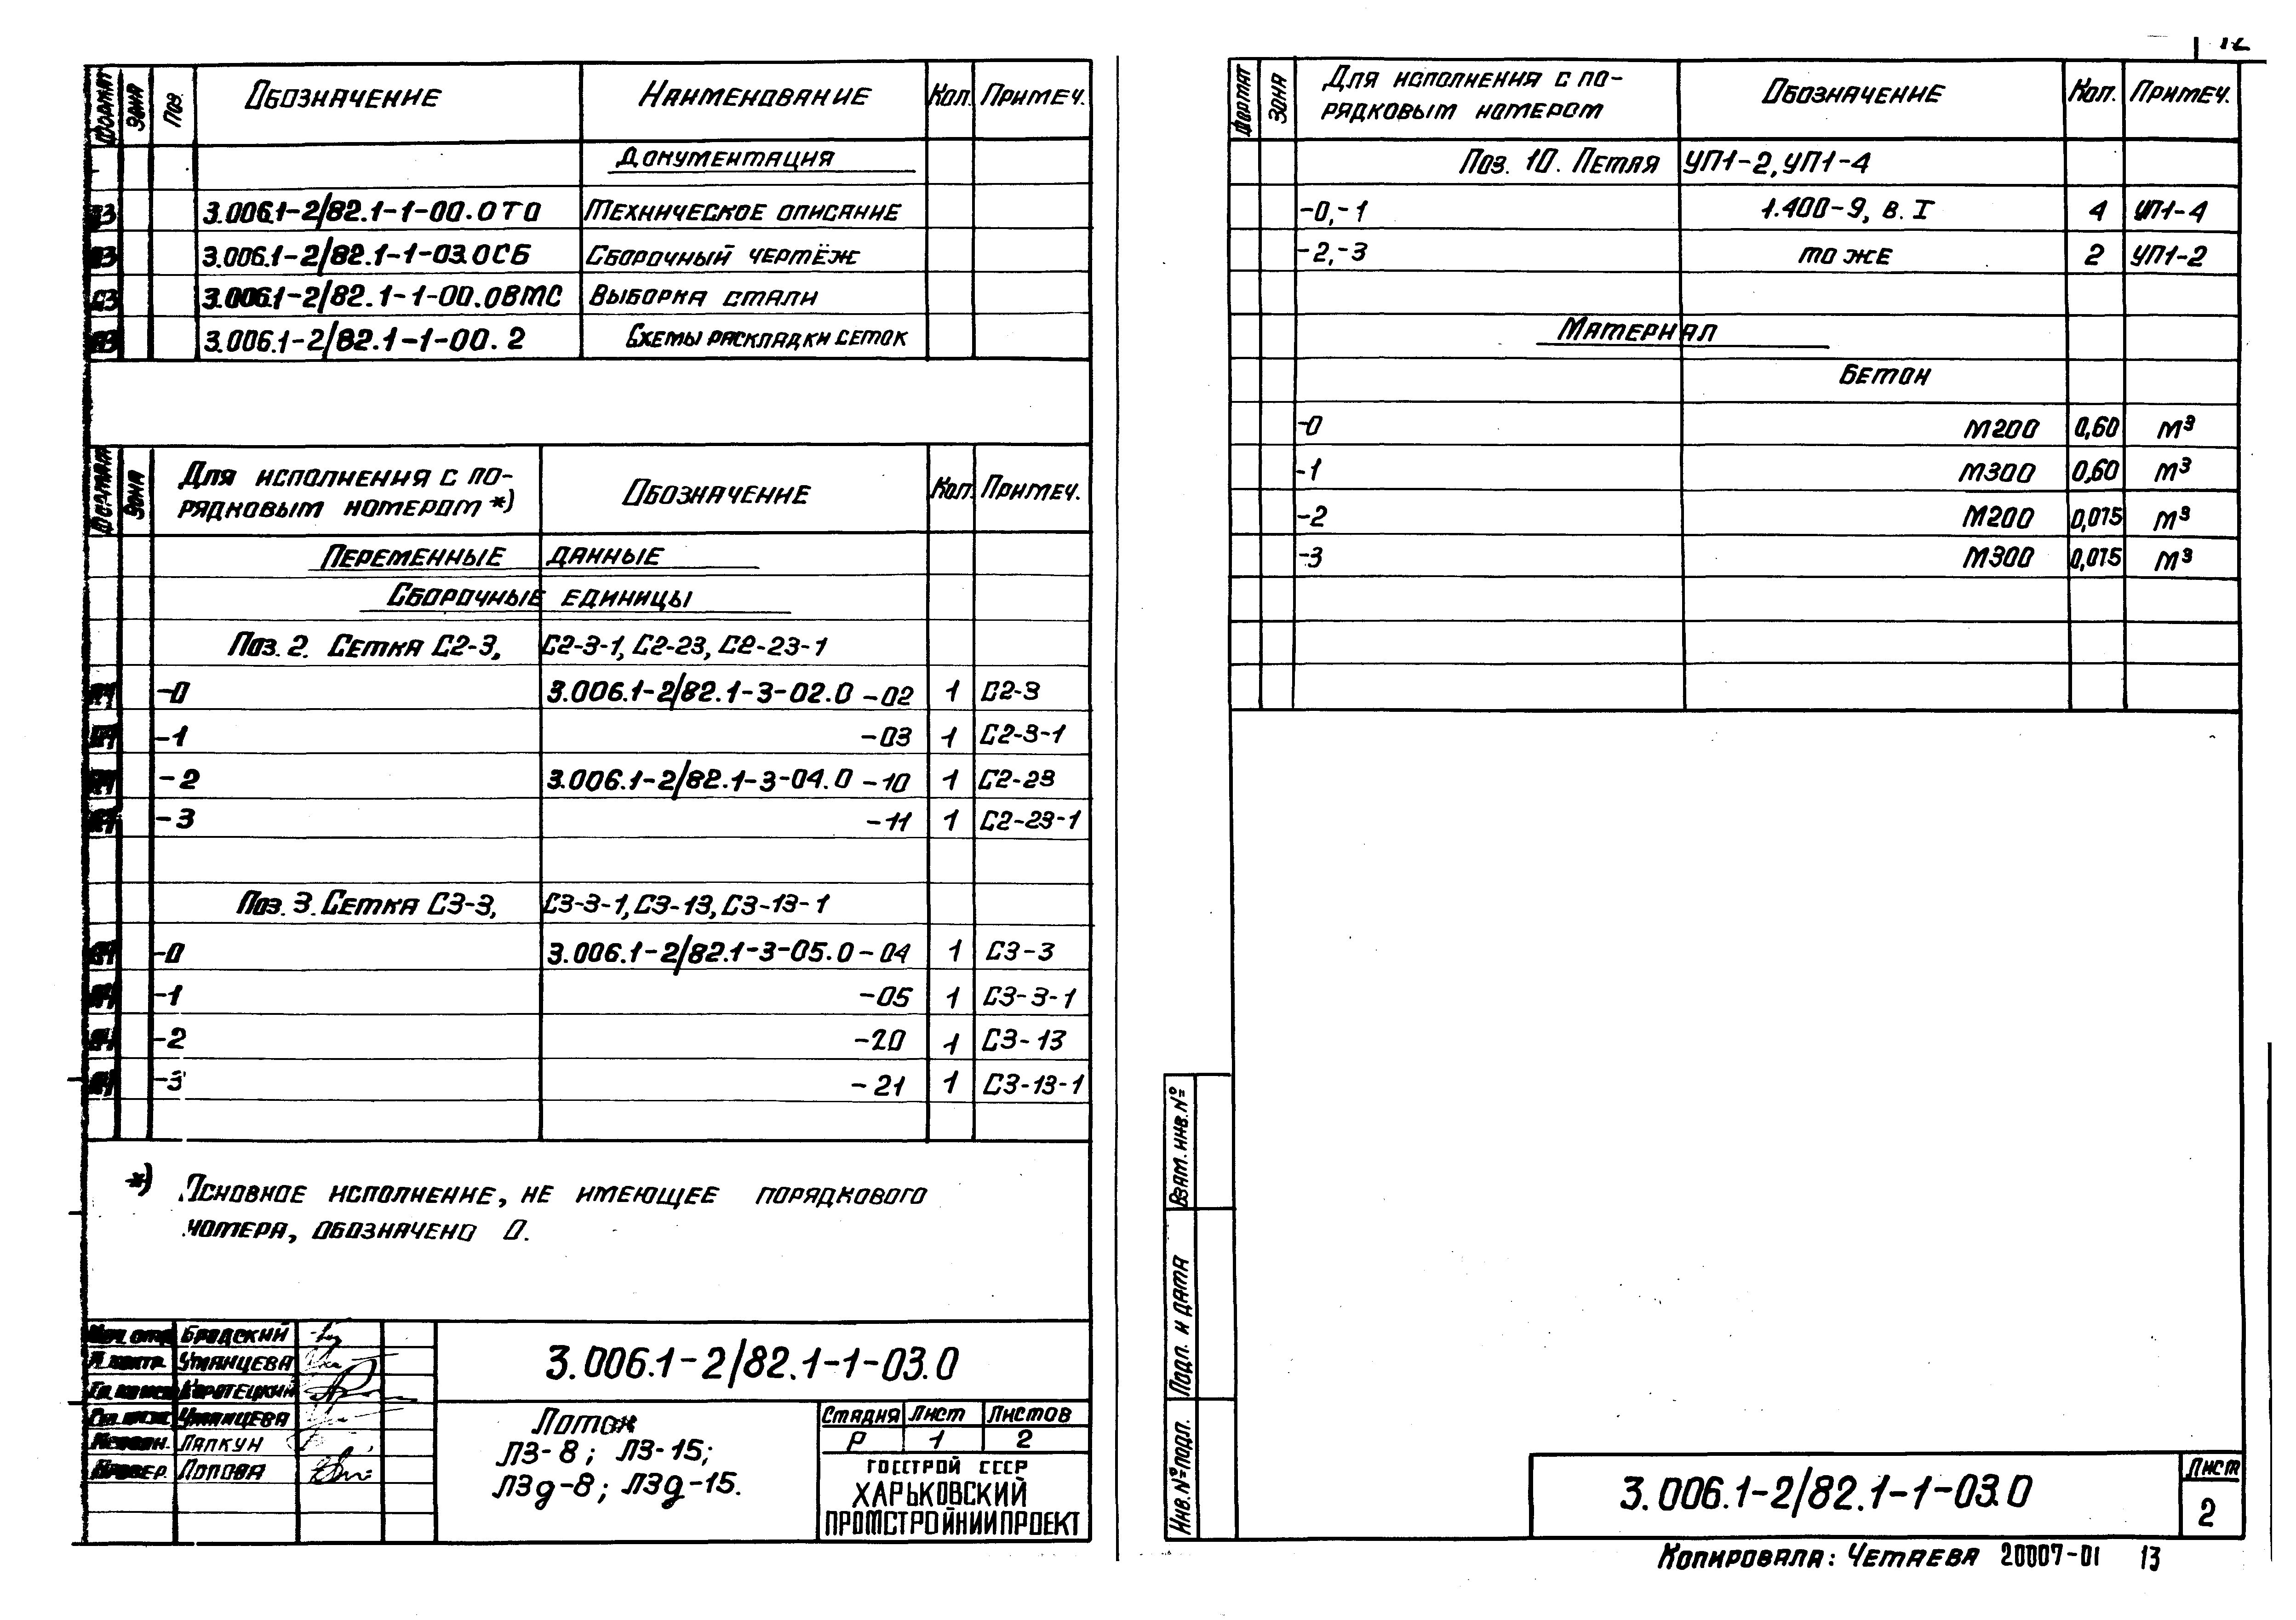 Формат Зона Поз. Обозначение Наименование Кол. Примеч.
Документация
3.006.1-2/82.1-1-00.0ТО Техническое описание
3.006.1-2/82.1-1-03.0СБ Сборочный чертёж
3.006.1-2/82.1-1-00.0ВМС Выборка стали
3.006.1-2/82.1-1-00.2 Схемы раскладки сеток
Формат Зона Для исполнения с по- Обозначение Кол. Примеч.
рядковым номером *)
Переменные данные
Сборочные единицы
Поз. 2. Сетка С2-3, С2-3-1, С2-23, С2-23-1
-0 3.006.1-2/82.1-3-02.0 -02 1 С2-3
-1 -03 1 С2-3-1
-2 3.006.1-2/82.1-3-04.0 -10 1 С2-23
-3 -11 1 С2-23-1
Поз. 3. Сетка С3-3, С3-3-1, С3-13, С3-13-1
-0 3.006.1-2/82.1-3-05.0-04 1 С3-3
-1 -05 1 С3-3-1
-2 -20 1 С3-13
-3 -21 1 С3-13-1
*) Основное исполнение, не имеющее порядкового
номера, обозначено 0.
Нач. отд. Бродский
Н. контр. Уманцева
Гл. констр. Коротецкий
Ст. инж. Уманцева
Исполн. Лапкун
Провер. Попова
3.006.1-2/82.1-1-03.0
Лоток
Л3-8; Л3-15;
Л3д-8; Л3д-15.
Стадия Лист Листов
Р 1 2
Госстрой СССР
ХАРЬКОВСКИЙ
ПРОМСТРОЙНИИПРОЕКТ
Формат Зона Для исполнения с по- Обозначение Кол. Примеч.
рядковым номером
Поз. 10. Петля УП1-2, УП1-4
-0,-1 1.400-9, в. I 4 УП1-4
-2,-3 то же 2 УП1-2
Материал
Бетон
-0 М200 0,60 м³
-1 М300 0,60 м³
-2 М200 0,075 м³
-3 М300 0,075 м³
Взам. инв. №
Подп. и дата
Инв. № подл.
3.006.1-2/82.1-1-03.0
Лист
2
Копировала: Четаева 20007-01 13